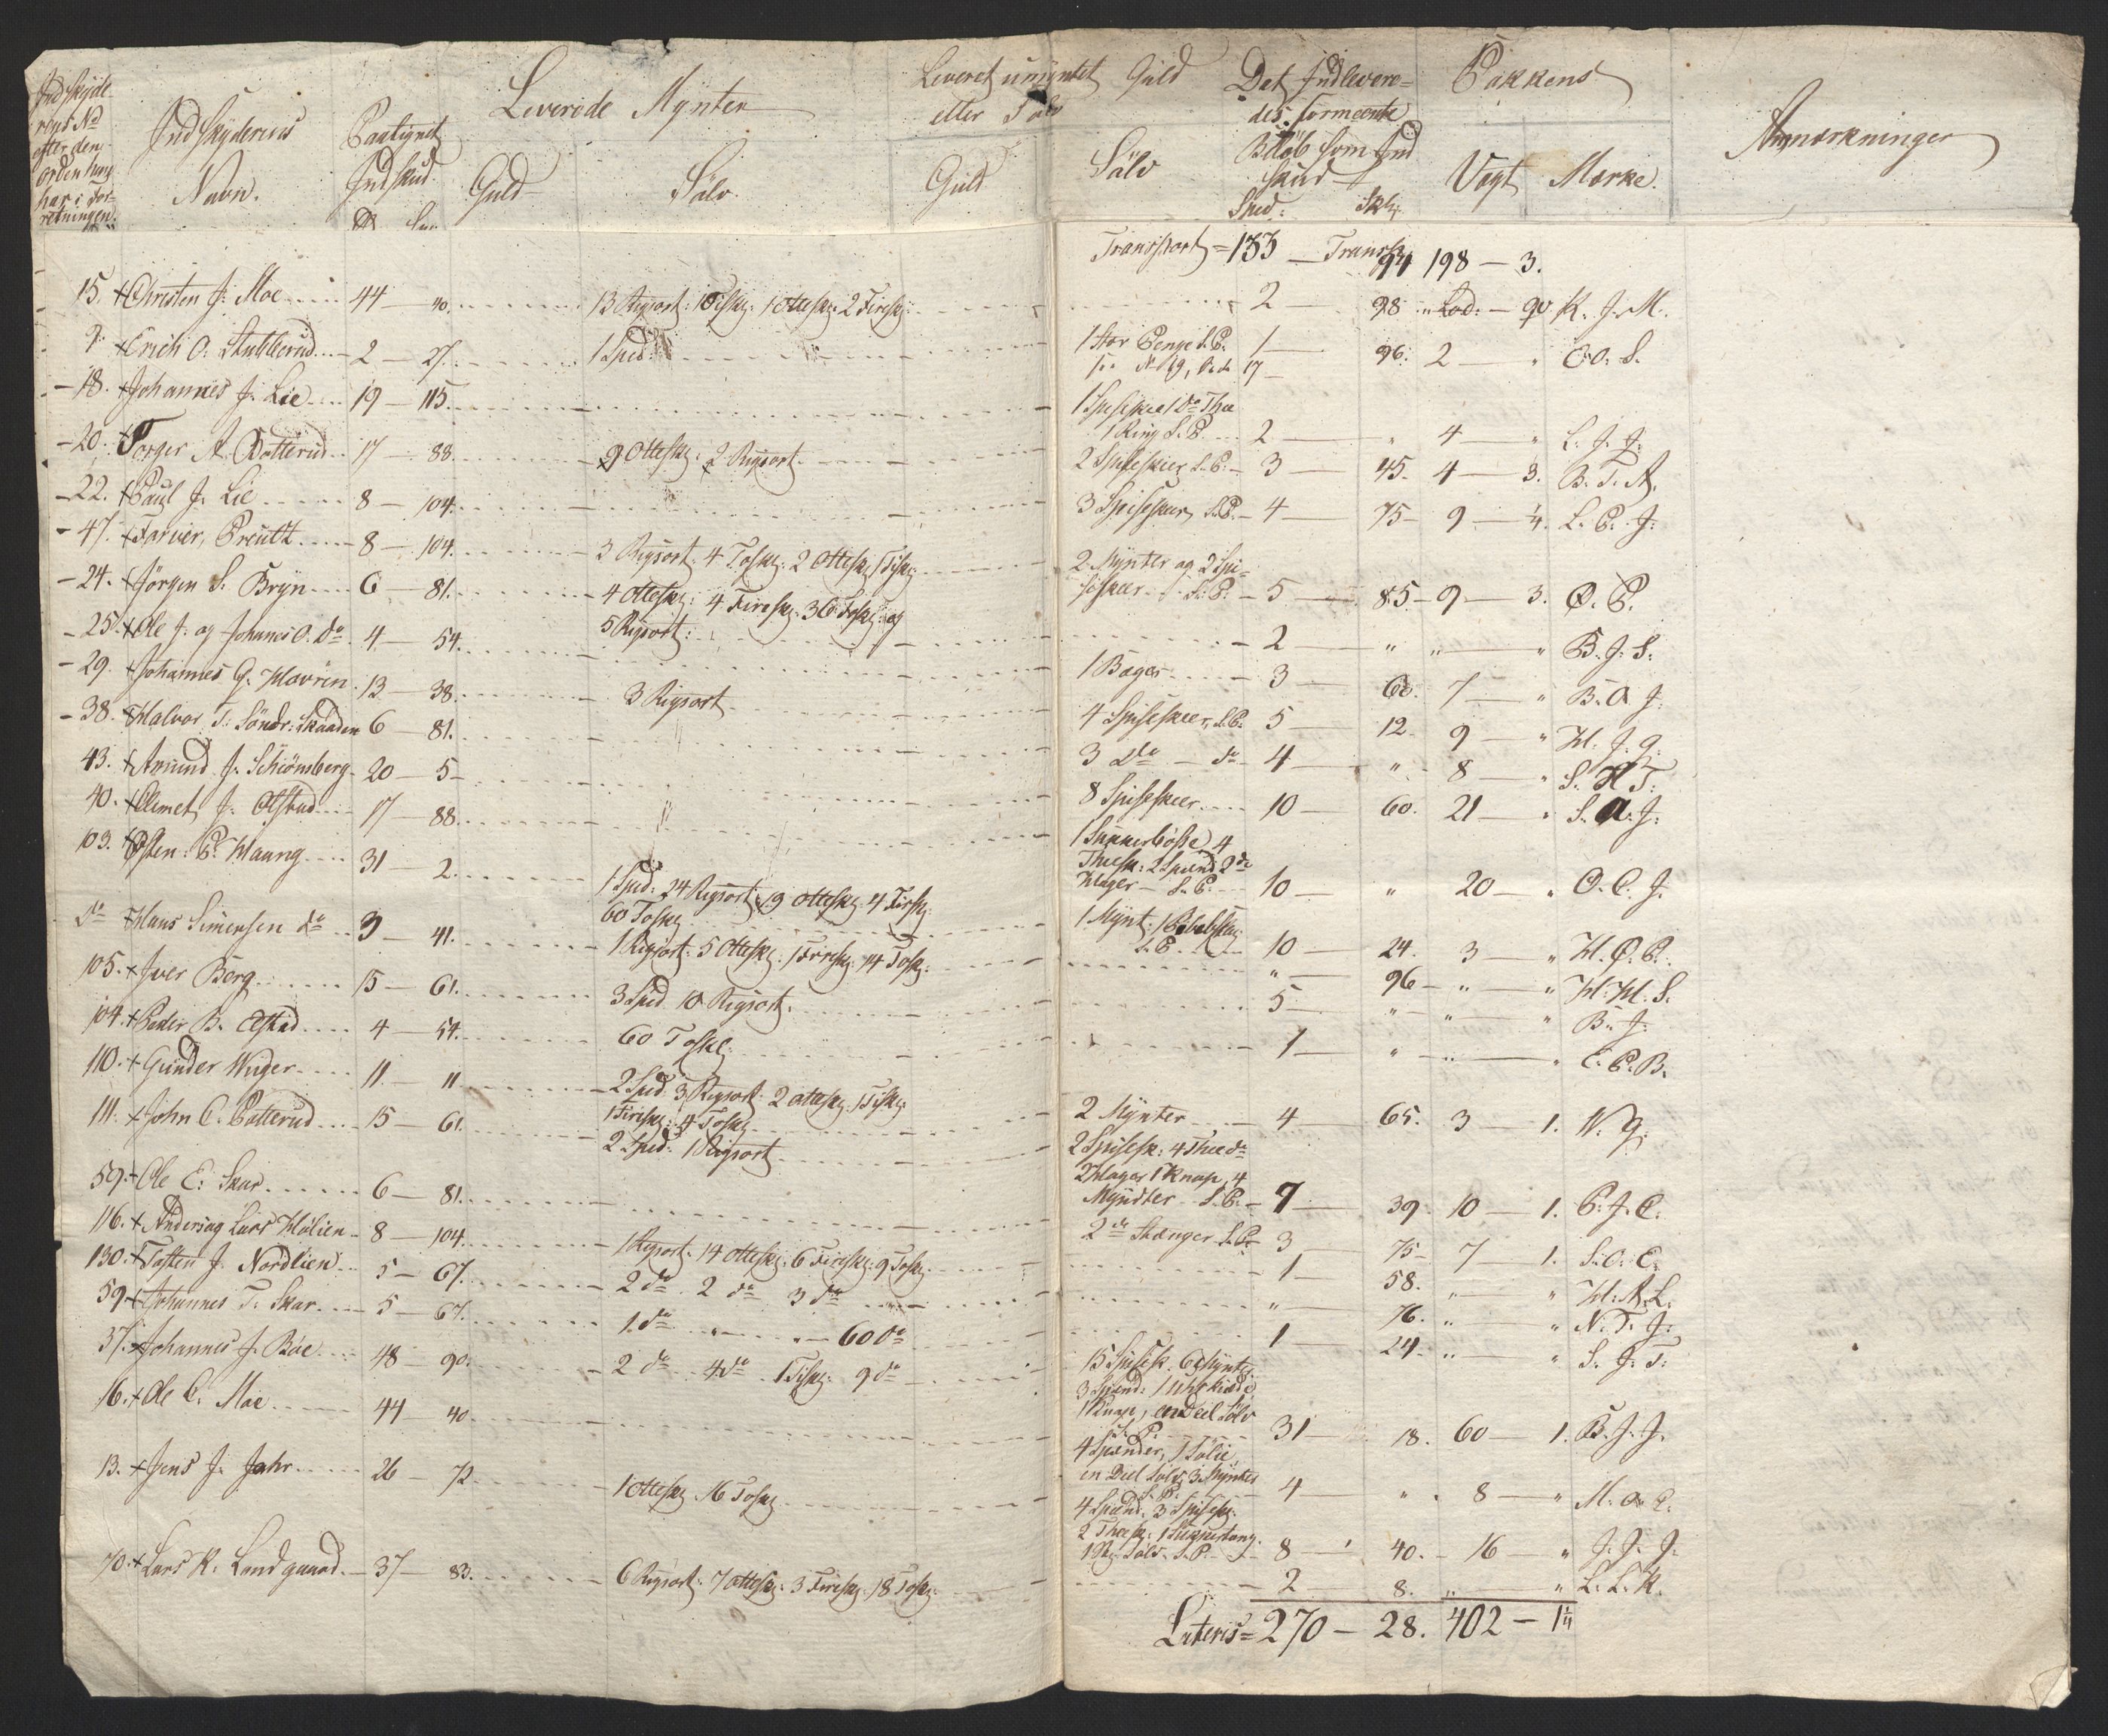 Indskyde-
rens No
efter den
Orden hung
har i For-
retningen.
Indskyderens
Navn.
Paalignet
Indskud.
Leverede Mynter
Guld
Sölv.
Leveret umyntet Guld
eller Sölv
Guld
Sölv
Det Indlevere-
des formeente
Belöb som Ind
skud
Sped: Skl:
Pakkens
Vægt Mærke.
Anmærkninger
Transport = 133 — Transp: 94 198 — 3.
15. + Christen J. Moe 44 — 40. 13 Rigsort: 1 Otteskg: 2 Fireskg 2 98 " Lod: — 90 K. J. M.
9. + Erich O: Stubberud 2 — 27. 1 Sped: 1 — 96. 2 — " E. O. S.
1 Stor Penge S.P.
- 18. + Johannes J. Lie 19 — 115.
1 Speseskee 1 do Thee
1 Ring S.P. 2 — " 4 — " L. J. J.
- 20. Torger A. Botterud 17 — 88. 9 Otteskg: 2 Rigsort. 2 Spiseskeer S.P. — 3 — 45. 4 — 3. B. T. A.
- 22. + Paul J. Lie 8 — 104. 3 Spiseskeer, S.P. — 4 — 75 — 9 — 1/4. L. P. J.
- 47. + Farver, Preutz 8 — 104. 3 Rigsort. 4 Toskg: 2 Otteskg 1 Tiskg
2 Mynter og 2 Spi-
seskeer S.P. — 5 — 85 — 9 — 3. Ø. P.
- 24. + Jörgen S. Bryn 6 — 81. 4 Otteskg: 4 Fireskg: 36 Toskg: og
5 Rigsort: 2 — " " — " B. J. S.
- 25. + Ole J. og Johanes O. do 4 — 54. 1 Bæger 3 — 60. 7 — " B. O J.
- 29. + Johannes G. Havrén 13 — 38. 3 Rigsort 4 Spiseskeer, S.P. 5 — 12 9 — " H. J. G.
- 38. + Halvor T: Söndr: Skaaden 6 — 81. 3 do — do 4 — " 8 — " S. H T.
43. + Amund J. Schiönsberg 20 — 5 — 8 Spiseskeer 10 — 60. 21 — " S. A. J.
40. + Clemet J. Alstad 17 — 88.
1 Sukkerbösse 4
Theesk: 2 Spænd 2 do
Hager — S.P. 10 — " 20 — " O. C. J.
103. + Østen P. Haung 31 — 2. 1 Sped: 24 Rigsort: 9 Otteskg 4 Firskg:
60 Toskg
1 Mynt:
S.P. 10 — 24. 3 — " H. Ø. P.
do + Hans Simensen do 9 — 41. 1 Rigsort: 5 Otteskg: 1 Fireskg. 14 Toskg: " — 96 — " — " H. H. S.
105. + Iver Berg 15 — 61. 3 Sped 10 Rigsort. 5 — " — " — " B. J.
104. + Peder B. Alstad 4 — 54. 60 Toskg. 1 — " — " — " E. P. B.
110. + Gunder Wuger 11. 11 2 Sped 3 Rigsort: 2 Otteskg: 1 Tiskg
1 Fireskg: 4 Toskg 2 Mynter 4 65. 3 — 1. W. G.
111. + John C. Botterud 15 — 61. 2 Sped: 1 Rigsort
2 Spisesk: 4 Thee do
2 Hager 1 Knap, 4
Myndter S.P. — 7 39. 10 — 1. P. J. C.
59. + Ole E: Skar 6 — 81. 2 do Stænger S.P. 3 75 — 7 — 1. S. O. E.
116. + Anders og Lars Hölien — 8 — 104. 1 Rigsort. 14 Otteskg. 6 Fireskg. 9 Toskg. 1 — 58. " — " H. A. L.
130. + Tosten J. Nordlien 5 — 67. 2 do 2 do 3 do " — 76. " — " N. T. J.
59. + Johannes T. Skar 5 — 67. 1 do " — " — 60 do 1 24. " — " S. J. T.
37. + Johannes J. Böe 48 90. 2 do 4 do 1 Tiskg. 9 do
15 Spisesk. 6 Mynter
3 Spænd: 1 Uhrkiede
1 Knap, en Deel Sölv
S.P. 31 — 18. 60 — 1. B. J. J.
16. + Ole C. Moe 44 40
4 Spænder, 1 Sölie,
en Deel Sölv, 3 Mynter
S.P. 4 — " 8 — " M. O. C.
13. + Jens J. Jahr 26 — 72 1 Otteskg 16 Toskg
4 Spænd. 3 Spiseskg.
2 Theesk. 1 Sukkertang.
Sölv. S.P. 8 40. — 16 — " J. J. J.
70. + Lars K. Landgaard — 37 — 83. 6 Rigsort: 7 Otteskg: 3 Fireskg. 18 Toskg. 2 8. " — " L. L. K.
Lateris = 270 — 28. 402 — 1 1/4